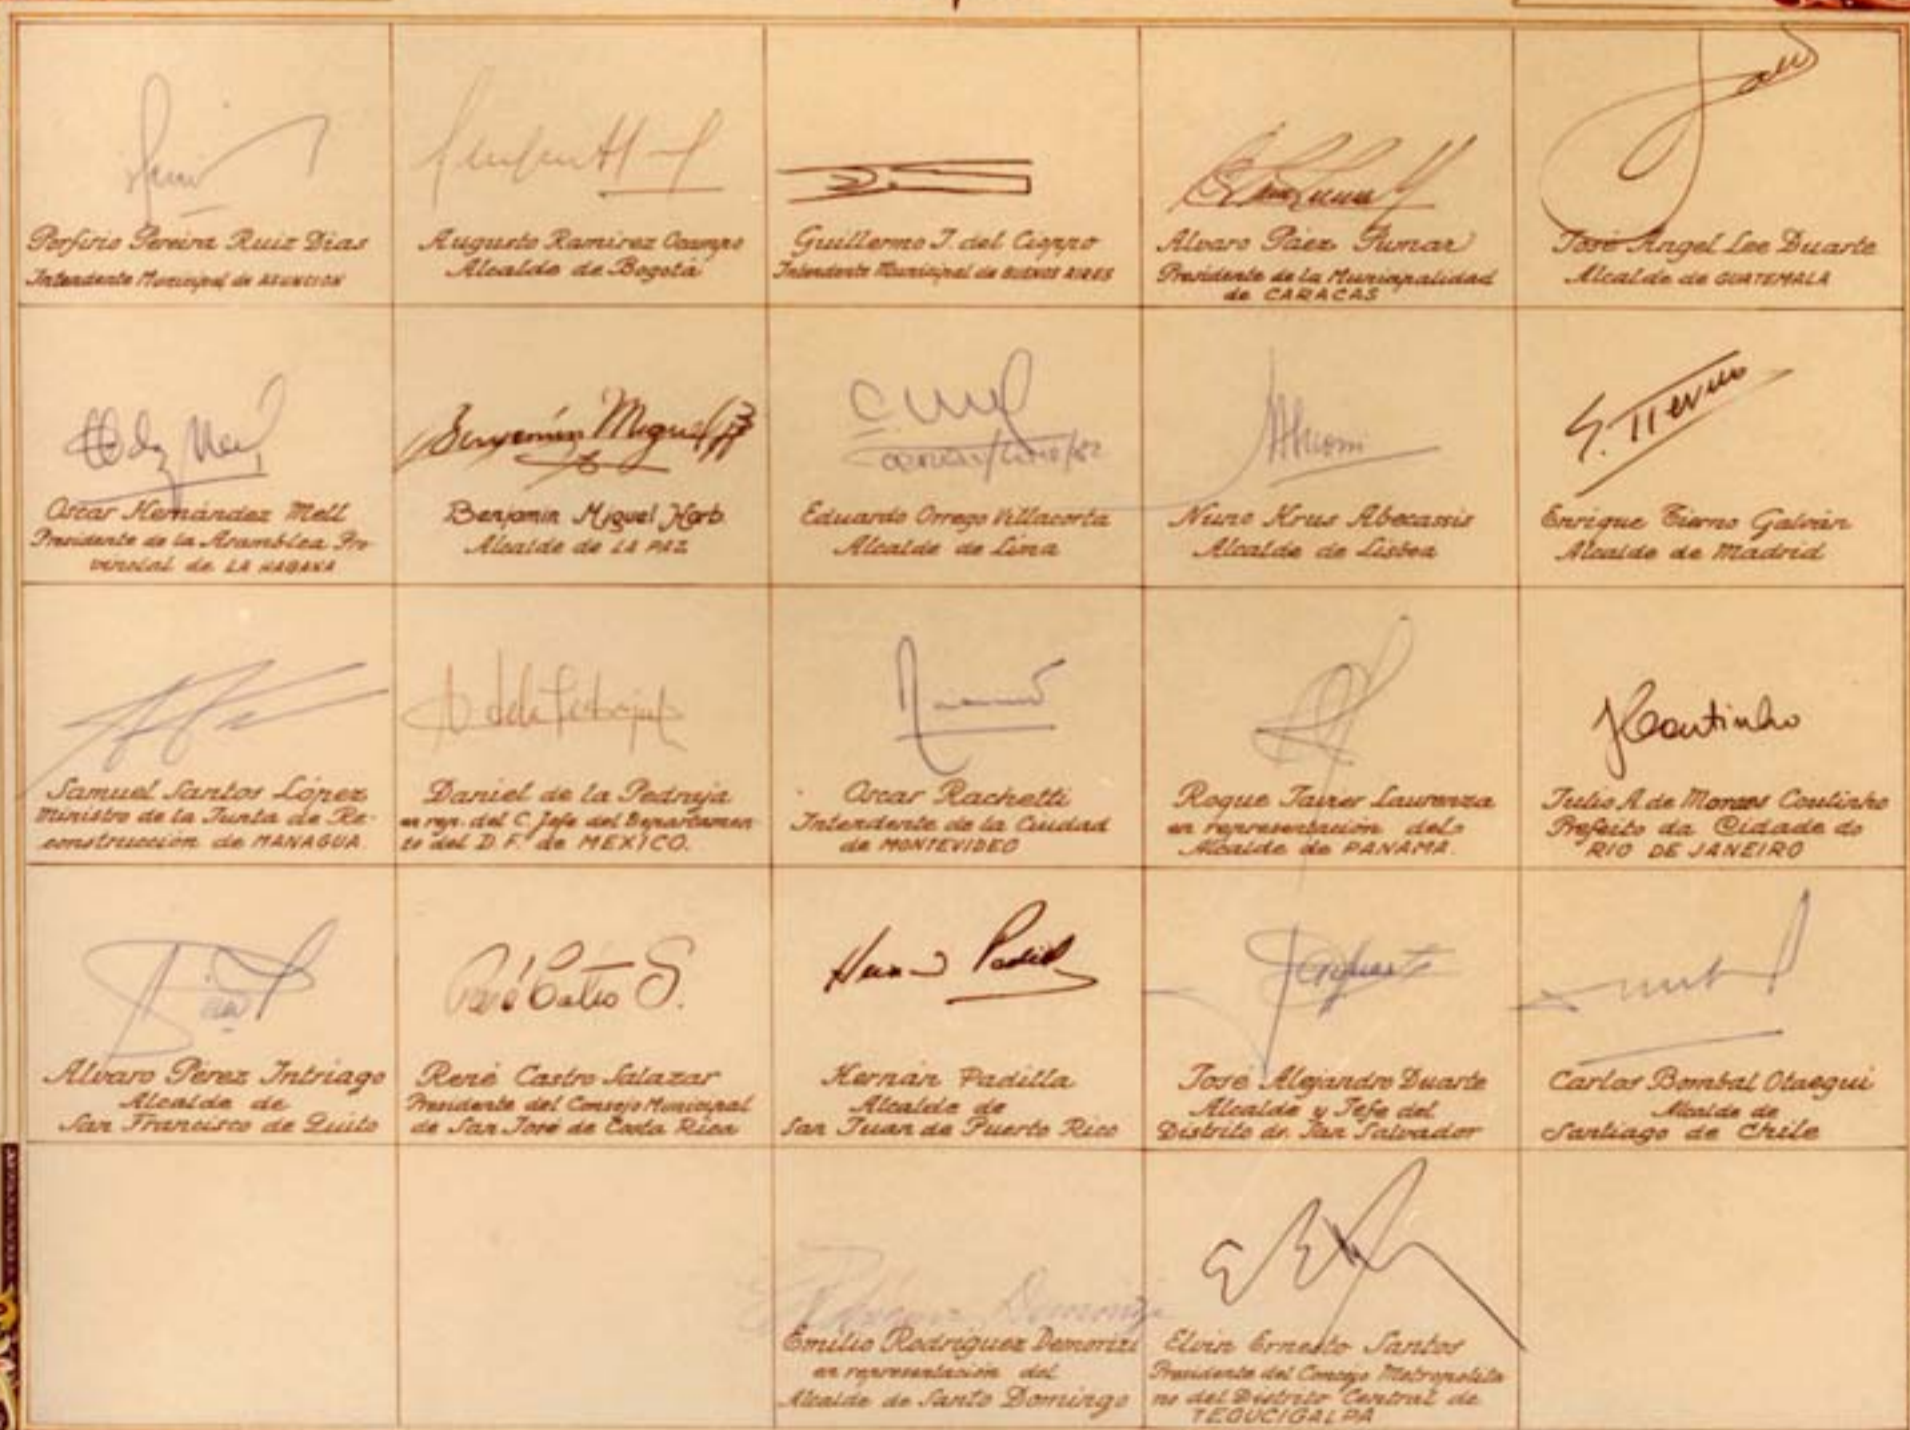 Porfirio Pereira Ruiz Dias
Intendente Municipal de ASUNCION
Augusto Ramirez Ocampo
Alcalde de Bogotá
Guillermo J. del Cioppo
Intendente Municipal de BUENOS AIRES
Alvaro Páez Pumar
Presidente de la Municipalidad
de CARACAS
José Angel Lee Duarte
Alcalde de GUATEMALA
Oscar Hernández Mell
Presidente de la Asamblea Pro-
vincial de LA HABANA
Benjamin Miguel
Benjamin Miguel Harb
Alcalde de LA PAZ
Eduardo Orrego Villacorta
Alcalde de Lima
Nuno Krus Abecassis
Alcalde de Lisboa
Enrique Tierno Galván
Alcalde de Madrid
Samuel Santos López
Ministro de la Junta de Re-
construcción de MANAGUA
Daniel de la Pedraja
en rep. del C. Jefe del Departamen-
to del D.F. de MEXICO.
Oscar Rachetti
Intendente de la Ciudad
de MONTEVIDEO
Roque Javier Laurenza
en representación del
Alcalde de PANAMA.
JCoutinho
Julio A. de Moraes Coutinho
Prefeito da Cidade do
RIO DE JANEIRO
Alvaro Pérez Intriago
Alcalde de
San Francisco de Quito
René Castro S.
René Castro Salazar
Presidente del Consejo Municipal
de San José de Costa Rica
Hernán Padilla
Alcalde de
San Juan de Puerto Rico
José Alejandro Duarte
Alcalde y Jefe del
Distrito de San Salvador
Carlos Bombal Otaegui
Alcalde de
Santiago de Chile
Emilio Rodríguez Demorizi
en representación del
Alcalde de Santo Domingo
Elvin Ernesto Santos
Presidente del Concejo Metropolita
no del Distrito Central de
TEGUCIGALPA